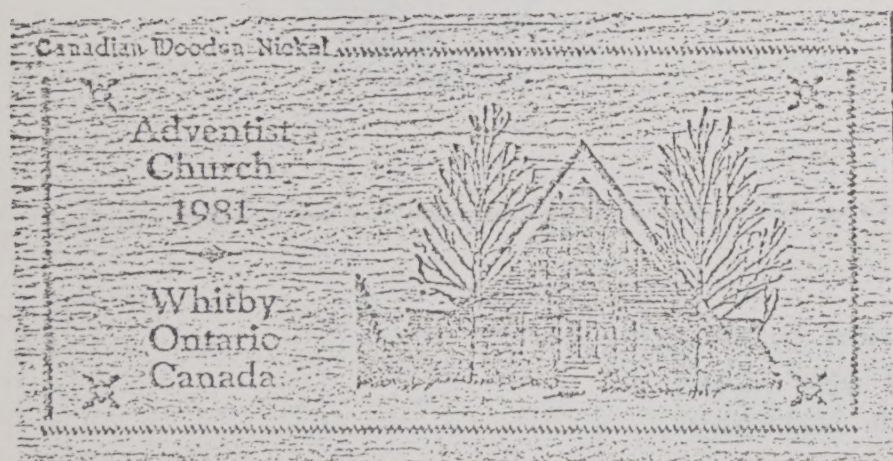 Canadian Wooden Nickel
Adventist
Church
1981
Whitby
Ontario
Canada